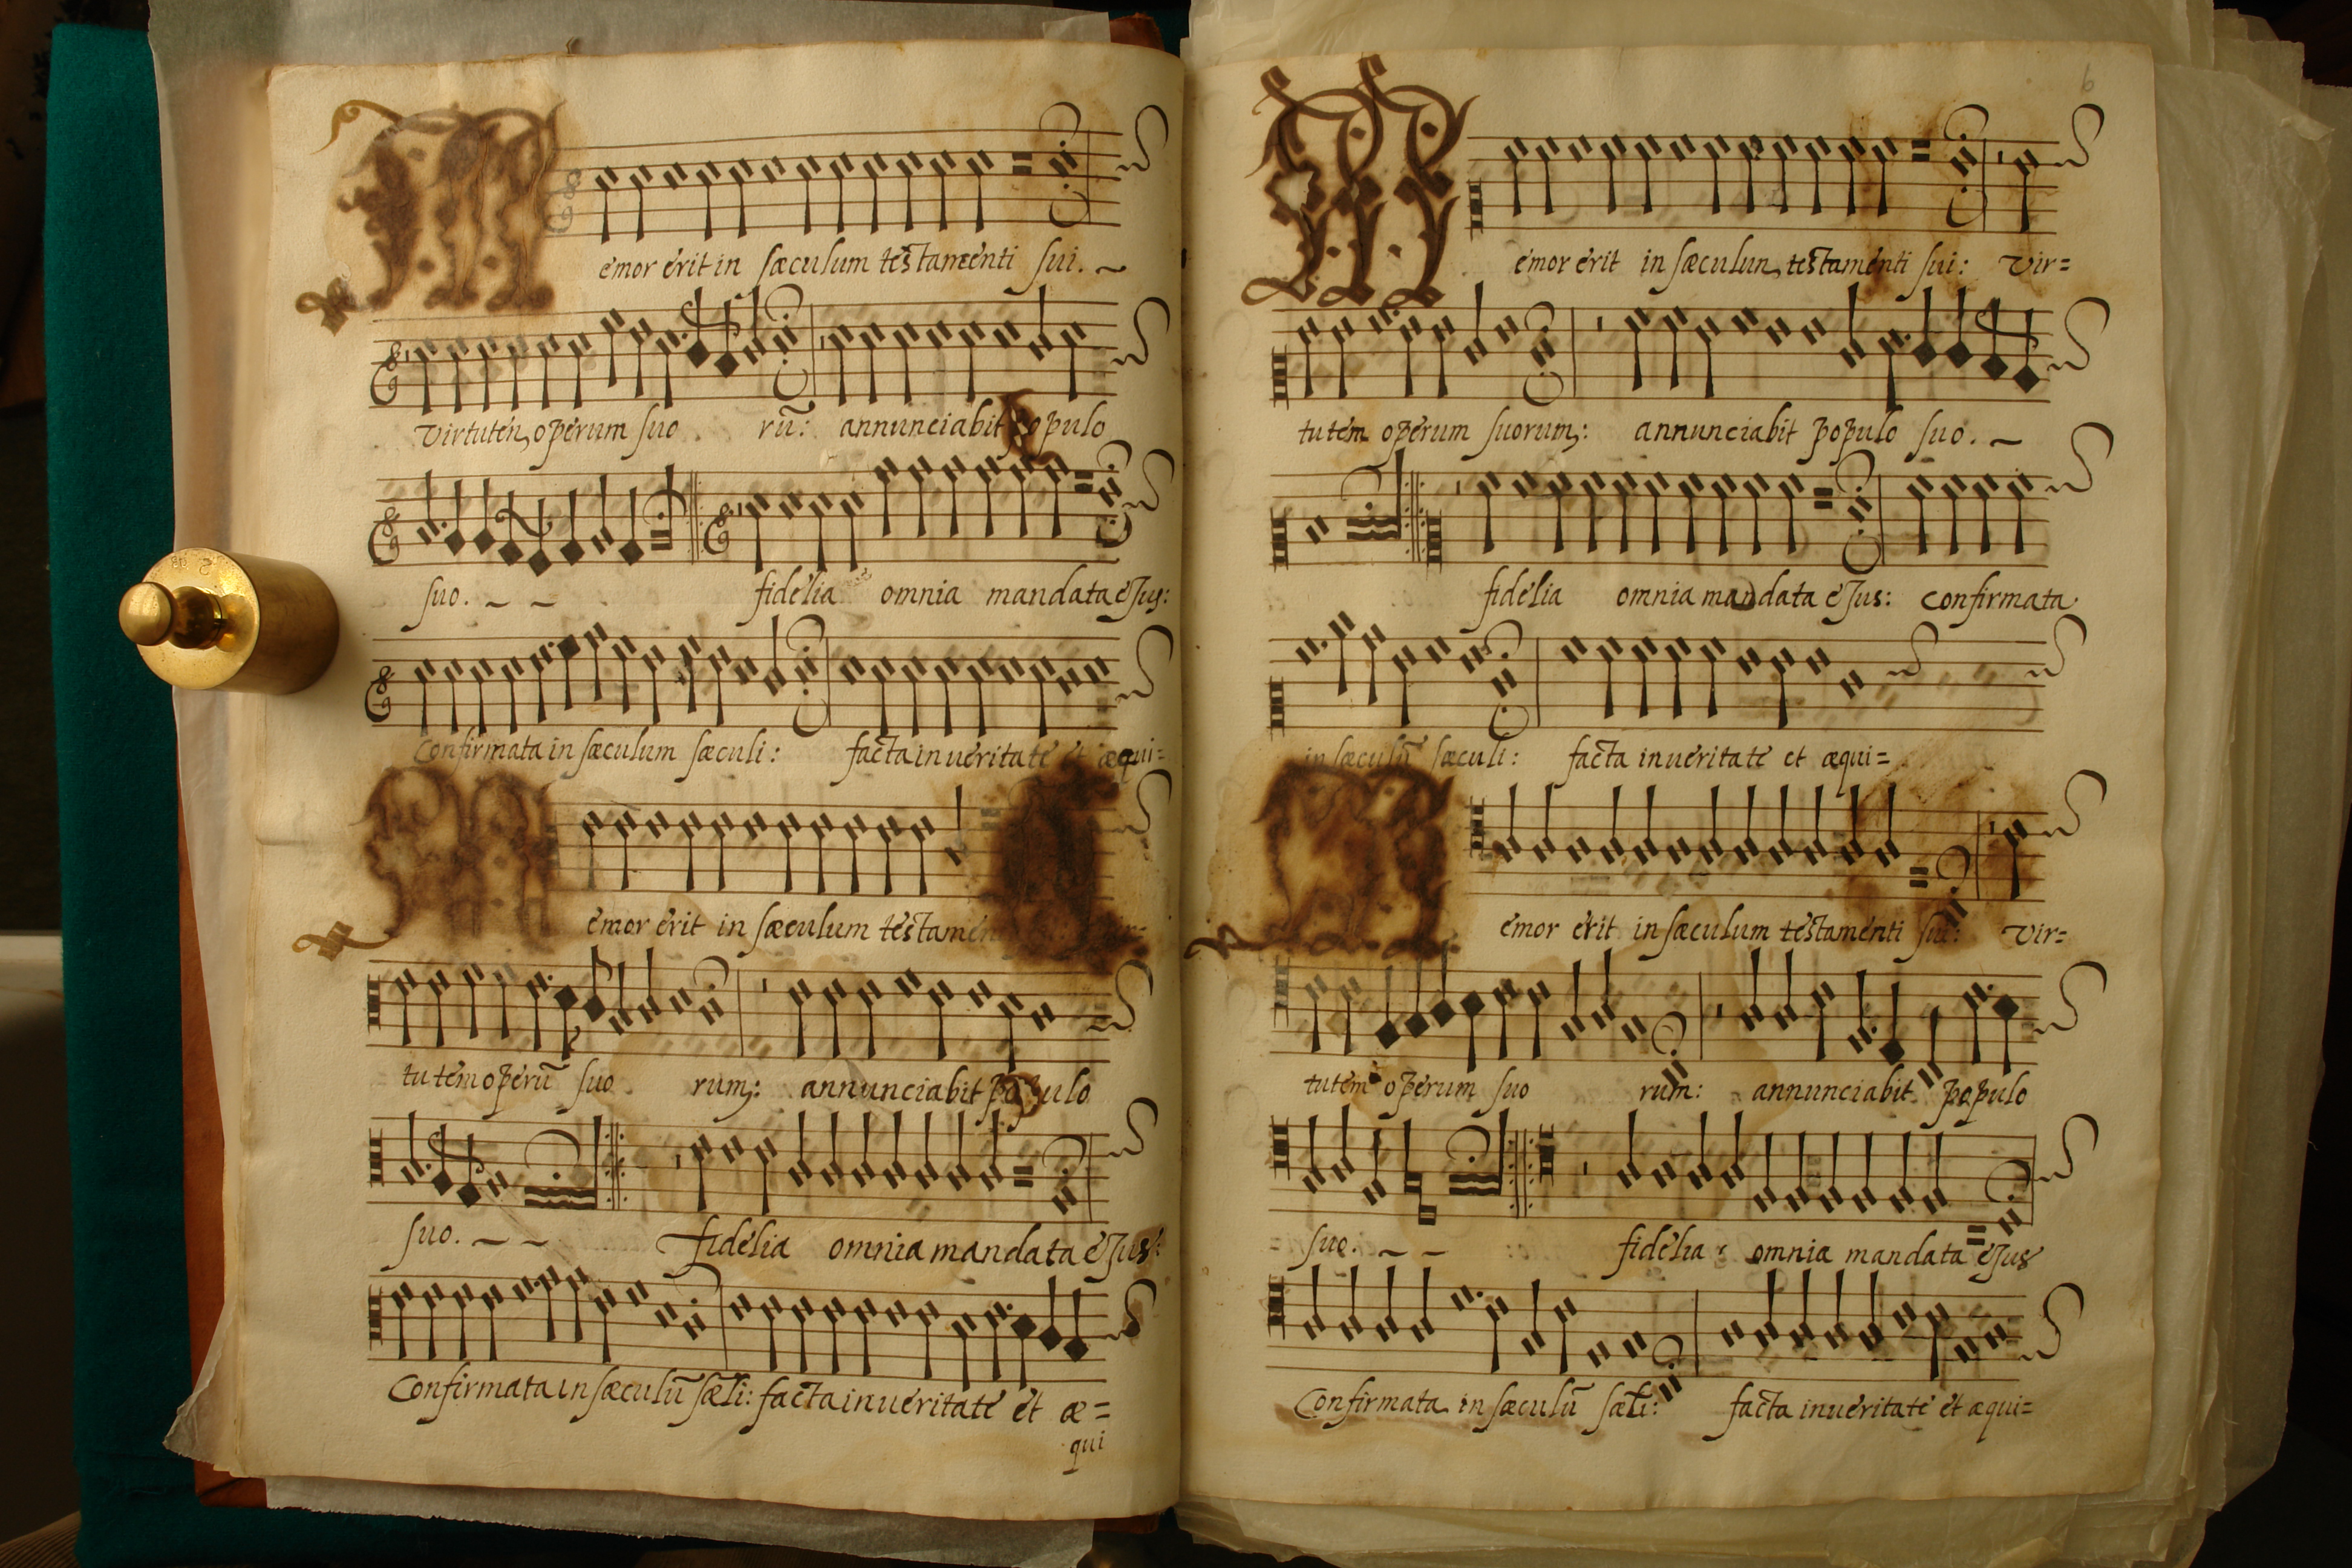 emor erit in sæculum testamenti sui.
Virtutem operum suo rū: annunciabit populo
suo. fidelia omnia mandata ejus:
Confirmata in sæculum sæculi: facta in ueritate et æqui=
emor erit in sæculum
tutem operū suo rum: annunciabit populo
suo. fidelia omnia mandata ejus:
Confirmata in sæculū sæli: facta in ueritate et æ=
qui
6
emor erit in sæculum testamenti sui: Vir=
tutem operum suorum: annunciabit populo suo.
fidelia omnia mandata ejus: confirmata
in sæculū sæculi: facta in ueritate et æqui=
emor erit in sæculum testamenti sui: Vir=
tutem operum suo rum: annunciabit populo
suo. fidelia omnia mandata ejus
Confirmata in sæculū sæli: facta in ueritate et æqui=